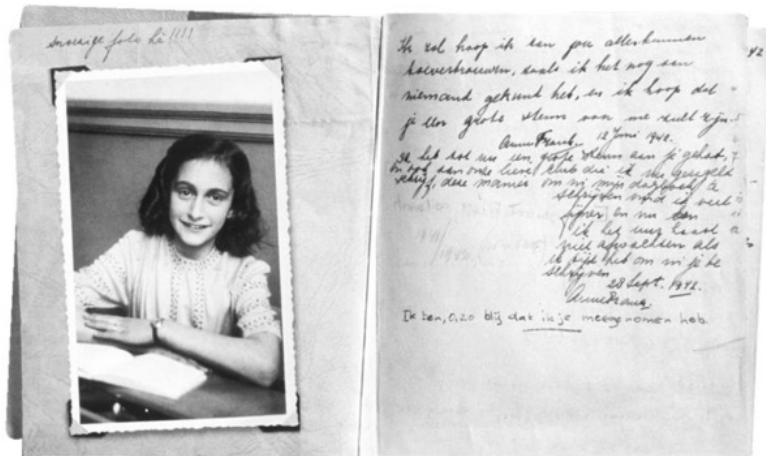 snoezige foto hè!!!!
Ik zal hoop ik aan jou alles kunnen
toevertrouwen, zoals ik het nog aan
niemand gekund heb, en ik hoop dat
je een grote steun van me zult zijn.
Anne Frank. 12 Juni 1942.
Ik heb tot nu een grote steun aan je gehad,
en ook aan onze lieve club die ik nu geregeld
schrijf, deze manier om in mijn dagboek te
schrijven vind ik veel
fijner en nu kan
ik het uur haast
niet afwachten als
ik tijd heb om in je te
schrijven
28 Sept. 1942.
Anne Frank.
Ik ben, o, zo blij dat ik je meegenomen heb.
42